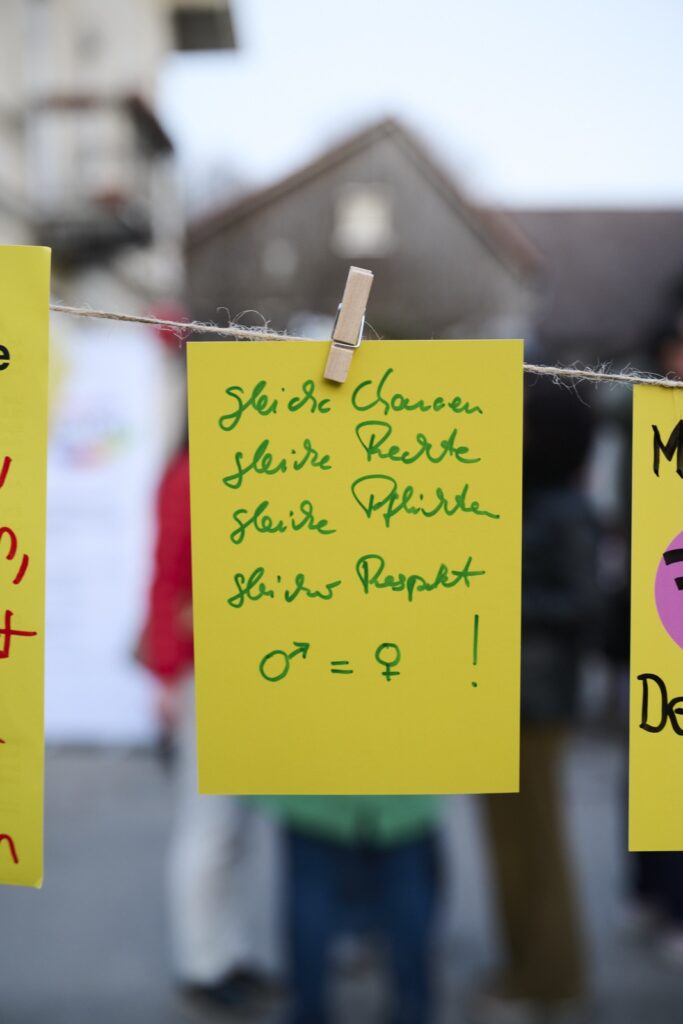 gleiche Chancen
gleiche Rechte
gleiche Pflichten
gleicher Respekt
♂ = ♀ !